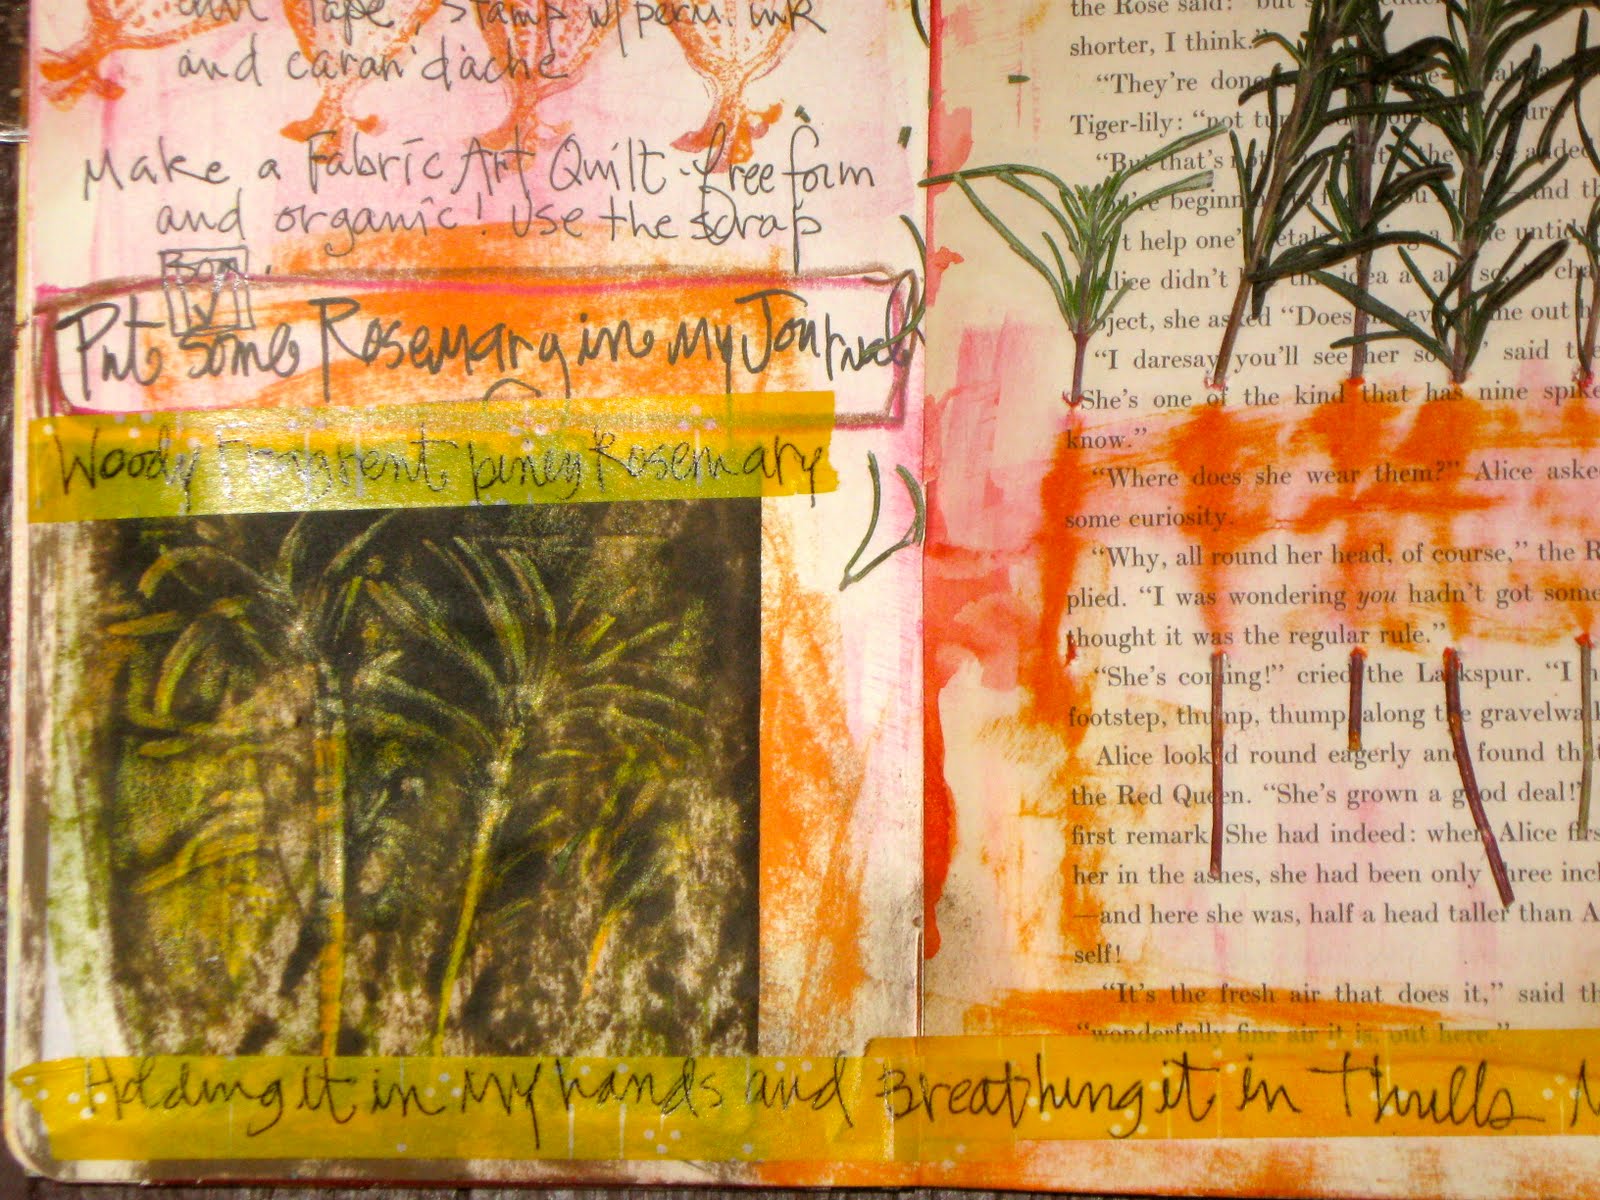 Tape, Stamp w/ pecu. ink
and caran dache
Make a Fabric Art Quilt - free form
and organic! Use the scrap
Box.
Put some Rosemary in my Journal
Woody Fragrent piney Rosemary
Holding it in my hands and Breathing it in Thrills
the Rose said: "but
shorter, I think."
"They're done
Tiger-lily: "not
"But that's the Rose added
beginn and
help one's petals getting a little untidy
Alice didn't like this idea at all: so, to
she asked "Does she ever come out
"I daresay you'll see her said
"She's one of the kind that has nine spike
know."
"Where does she wear them?" Alice aske
some curiosity.
"Why, all round her head, of course," the R
plied. "I was wondering you hadn't got some
thought it was the regular rule."
"She's coming!" cried the Larkspur. "I
footstep, thump, thump, along the gravelwalk
Alice looked round eagerly and found tha
the Red Queen. "She's grown a good deal!"
first remark. She had indeed: when Alice firs
her in the ashes, she had been only three inc
—and here she was, half a head taller than A
self!
"It's the fresh air that does it," said th
"wonderfully fine air it is, out here."